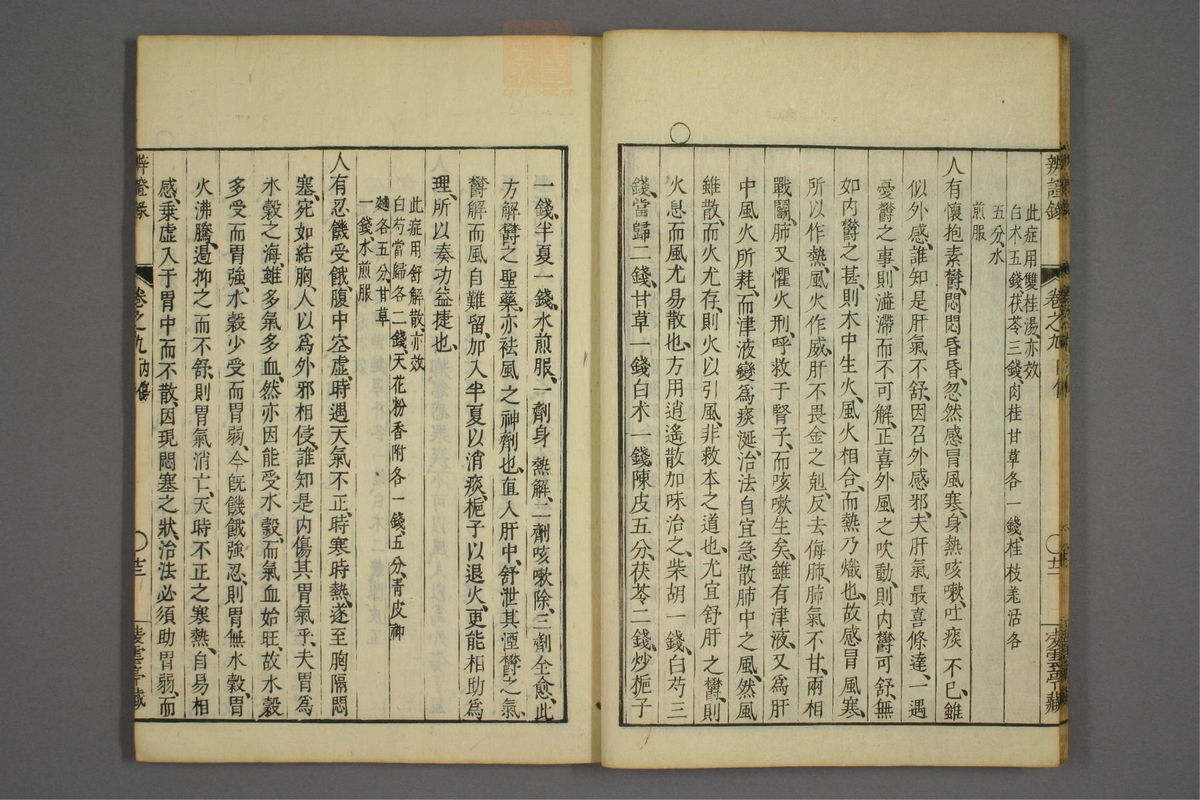 此症用雙桂湯亦效
白朮五錢茯苓三錢肉桂甘草各一錢桂枝羌活各
五分水
煎服
人有懷抱素欝悶悶昏昏忽然感冒風寒身熱咳嗽吐痰不已雖
似外感誰知是肝氣不舒因召外感邪夫肝氣最喜條達一遇
憂欝之事則澁滯而不可解正喜外風之吹動則內欝可舒無
如內欝之甚則木中生火風火相合而熱乃熾也故感冒風寒
所以作熱風火作威肝不畏金之剋反去侮肺肺氣不甘兩相
戰鬪肺又懼火刑呼救于腎子而咳嗽生矣雖有津液又爲肝
中風火所耗而津液變爲痰涎治法自宜急散肺中之風然風
雖散而火尤存則火以引風非救本之道也尤宜舒肝之欝則
火息而風尤易散也方用逍遙散加味治之柴胡一錢白芍三
錢當歸二錢甘草一錢白朮一錢陳皮五分茯苓二錢炒梔子
辨證錄
卷之九
凌雲亭藏
一錢半夏一錢水煎服一劑身熱解二劑咳嗽除三劑全愈此
方解欝之聖藥亦袪風之神劑也直入肝中舒泄其湮欝之氣
欝解而風自難留加入半夏以消痰梔子以退火更能相助爲
理所以奏功益捷也
此症用舒解散亦效
白芍當歸各二錢天花粉香附各一錢五分青皮神
麯各五分甘草
一錢水煎服
人有忍饑受餓腹中空虛時遇天氣不正時寒時熱遂至胸隔悶
塞宛如結胸人以爲外邪相侵誰知是內傷其胃氣乎夫胃爲
水穀之海雖多氣多血然亦因能受水穀而氣血始旺故水穀
多受而胃強水穀少受而胃弱今旣饑餓強忍則胃無水穀胃
火沸騰遏抑之而不舒則胃氣消亡天時不正之寒熱自易相
感乘虛入于胃中而不散因現悶塞之狀治法必須助胃弱而
辨證錄
卷之九 內傷
凌雲亭藏